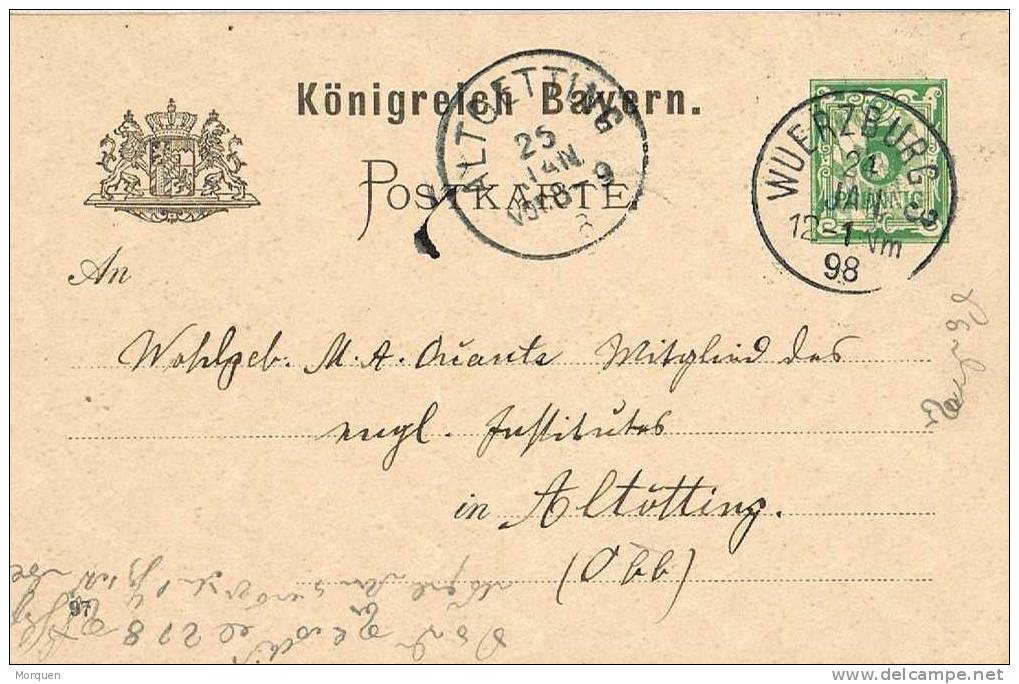 Königreich Bayern.
POSTKARTE
ALTOETTING
25
JAN
Vor. 8-9
WUERZBURG
24
JAN
12-1 Nm
98
An
Wohlgeb. M. A. Quante Mitglied des
engl. Institutes
in Altötting.
(Obb)
97
Morquen
delcampe.net